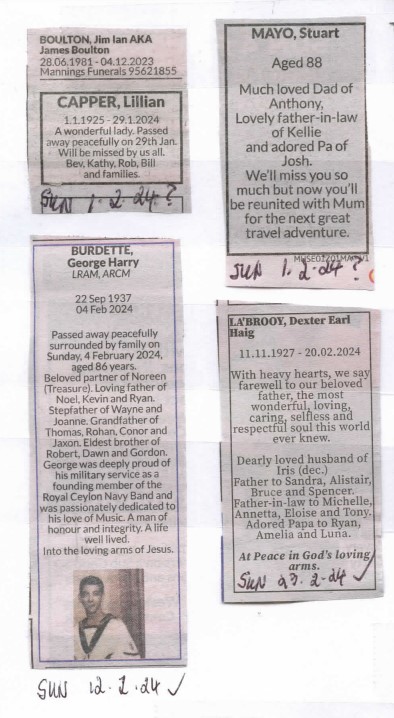 BOULTON, Jim Ian AKA
James Boulton
28.06.1981 - 04.12.2023
Mannings Funerals 95621855
CAPPER, Lillian
1.1.1925 - 29.1.2024
A wonderful lady. Passed
away peacefully on 29th Jan.
Will be missed by us all.
Bev, Kathy, Rob, Bill
and families.
SUN 1.2.24?
MAYO, Stuart
Aged 88
Much loved Dad of
Anthony,
Lovely father-in-law
of Kellie
and adored Pa of
Josh.
We'll miss you so
much but now you'll
be reunited with Mum
for the next great
travel adventure.
SUN 1.2.24?
BURDETTE,
George Harry
LRAM, ARCM
22 Sep 1937
04 Feb 2024
Passed away peacefully
surrounded by family on
Sunday, 4 February 2024,
aged 86 years.
Beloved partner of Noreen
(Treasure). Loving father of
Noel, Kevin and Ryan.
Stepfather of Wayne and
Joanne. Grandfather of
Thomas, Rohan, Conor and
Jaxon. Eldest brother of
Robert, Dawn and Gordon.
George was deeply proud of
his military service as a
founding member of the
Royal Ceylon Navy Band and
was passionately dedicated to
his love of Music. A man of
honour and integrity. A life
well lived.
Into the loving arms of Jesus.
SUN 12.2.24 ✓
LA'BROOY, Dexter Earl
Haig
11.11.1927 - 20.02.2024
With heavy hearts, we say
farewell to our beloved
father, the most
wonderful, loving,
caring, selfless and
respectful soul this world
ever knew.
Dearly loved husband of
Iris (dec.)
Father to Sandra, Alistair,
Bruce and Spencer.
Father-in-law to Michelle,
Annetta, Eloise and Tony.
Adored Papa to Ryan,
Amelia and Luna.
At Peace in God's loving
arms.
SUN 23.2.24 ✓